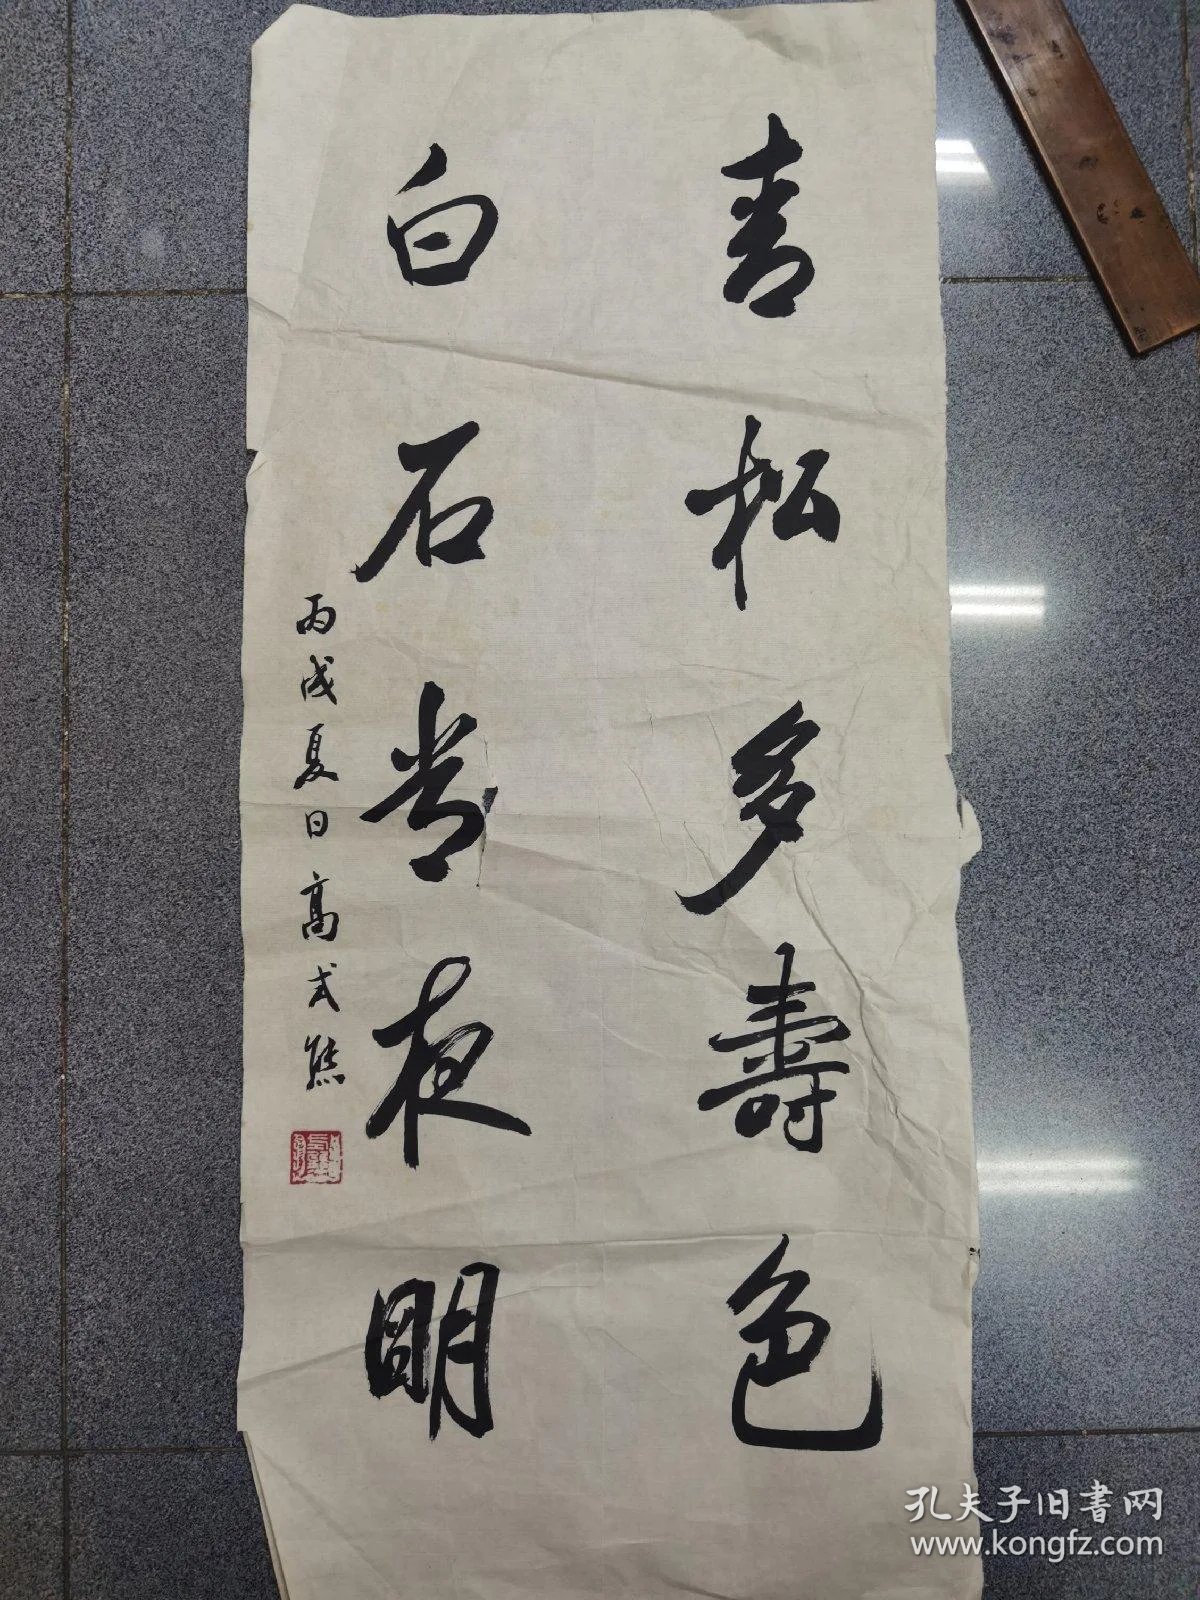 青松多壽色
白石常夜明
丙戌夏日高式熊
孔夫子旧書网
www.kongfz.com